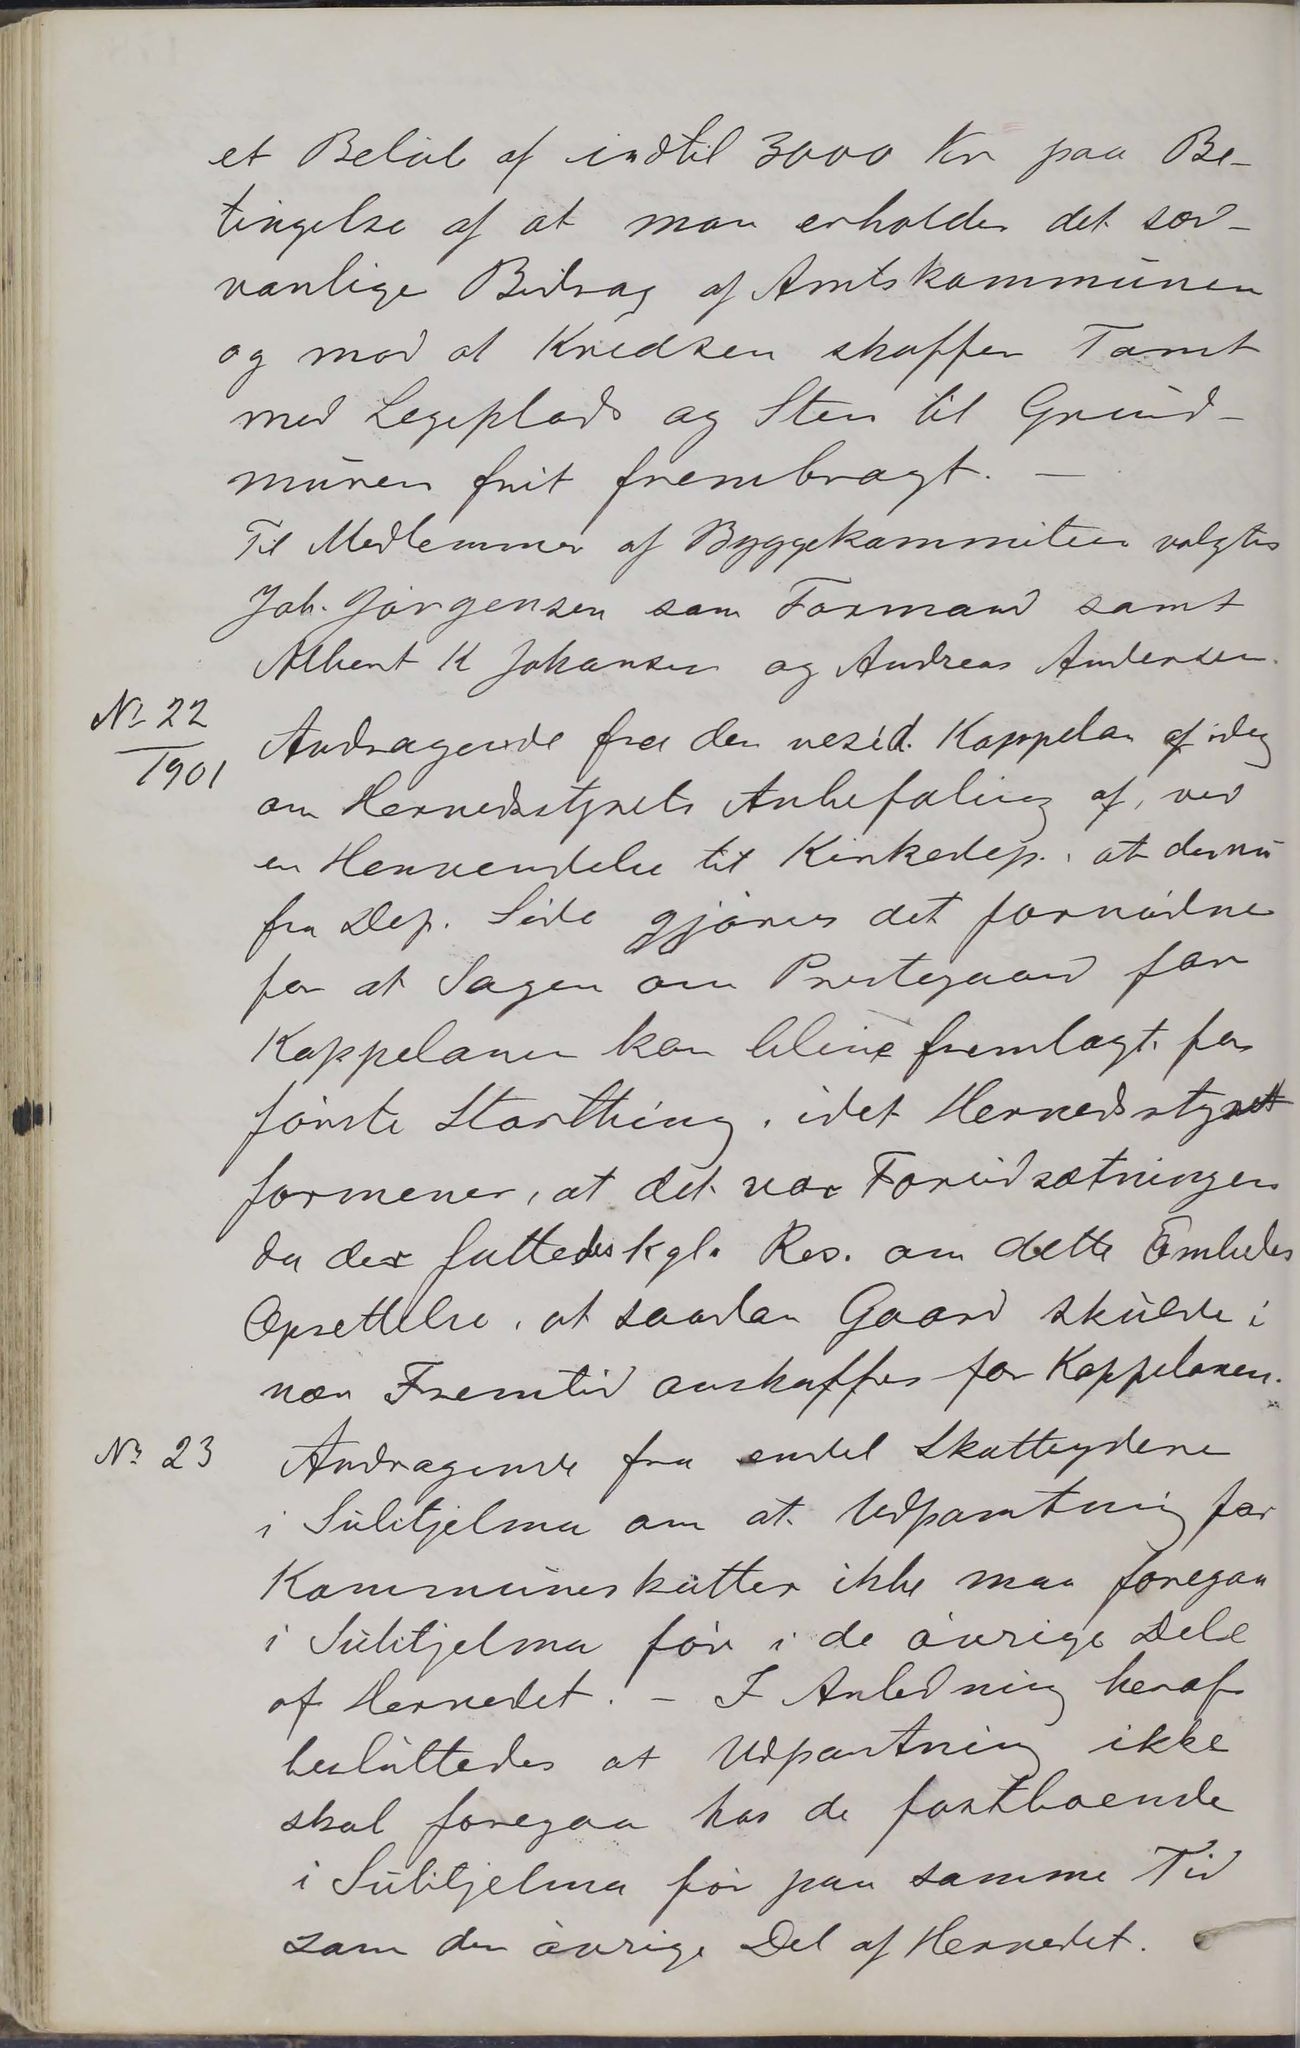 et Beløb af indtil 3000 Kr paa Be-
tingelse af at man erholder det sæd-
vanlige Bidrag af Amtskommunen
og mod at Kredsen skaffer Tomt
med Legeplads og Sten til Grund-
muren frit frembragt. —
Til Medlemmer af Byggekommiteen valgtes
Joh. Jørgensen som Formand samt
Albert K Johansen og Andreas Andersen.
No 22
1901
Andragende fra den resid. Kappelan af
om Herredsstyrets Anbefaling af, ved
en Henvendelse til Kirkedep., at der nu
fra Dep. Side gjøres det fornødne
for at Sagen om Prestegaard for
Kappelanen kan blive fremlagt for
første Storthing, idet Herredsstyret
formener, at det var Forudsætningen
da der fattedes kgl. Res. om dette Embedes
Oprettelse, at saadan Gaard skulde i
nær Fremtid anskaffes for Kappelanen.
No 23
Andragende fra endel Skatteydere
i Sulitjelma om at Udpantning for
Kommuneskatter ikke maa foregaa
i Sulitjelma før i de øvrige Dele
af Herredet. – I Anledning heraf
besluttedes at Udpantning ikke
skal foregaa hos de fastboende
i Sulitjelma før paa samme Tid
som den øvrige Del af Herredet.